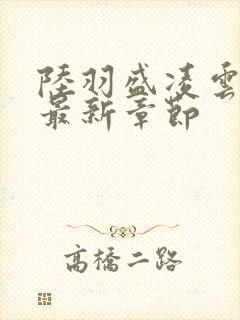 陸羽盛凌雲
最新章節
高橋二路